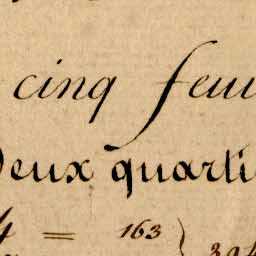 cinq feui
Deux quarti
4 = 163 } 394